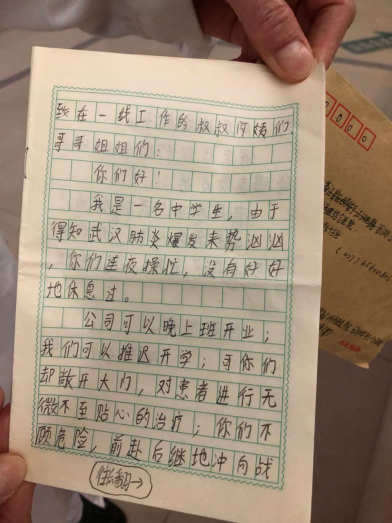 致在一线工作的叔叔阿姨们
哥哥姐姐们:
你们好!
我是一名中学生,由于
得知武汉肺炎爆发来势汹汹
,你们连夜操忙,没有好好
地休息过。
公司可以晚上班开业;
我们可以推迟开学;可你们
却敞开大门,对患者进行无
微不至贴心的治疗;你们不
顾危险,前赴后继地冲向战
往后翻→